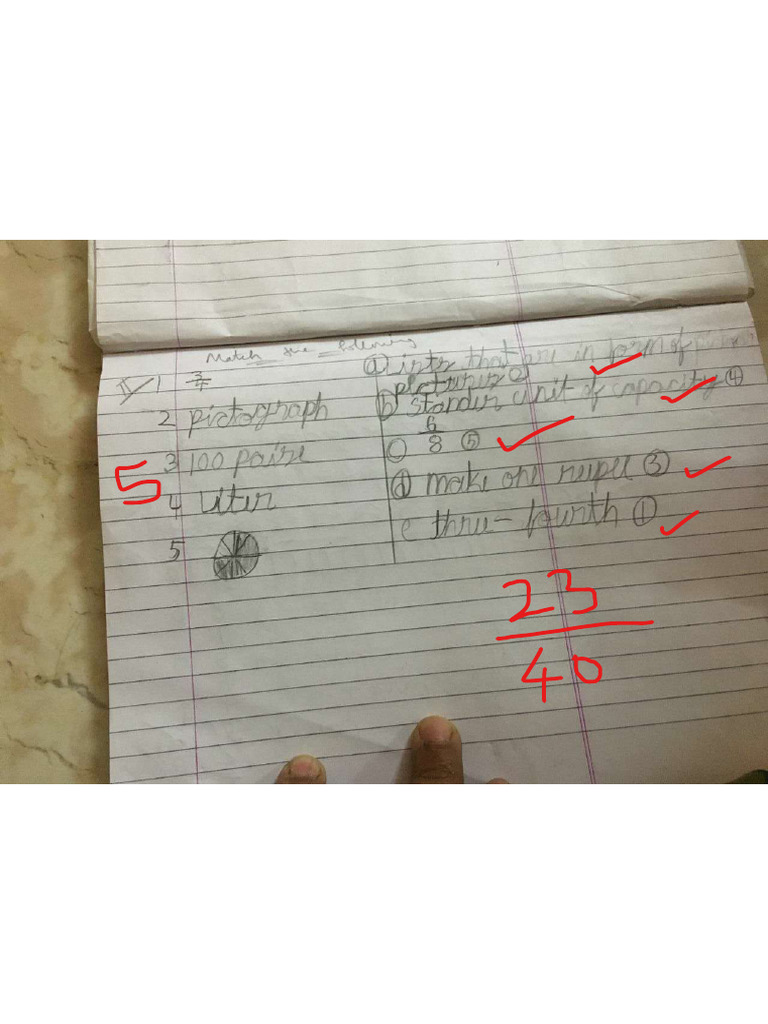 Match the following
V 1 3/4
2 pictograph
5 3 100 paise
4 liter
5
(a) that are in form of
pictures (2)
(b) stander unit of capacity (4)
(c) 6/8 (5)
(d) make one (3)
e thru-fourth (1)
23/40